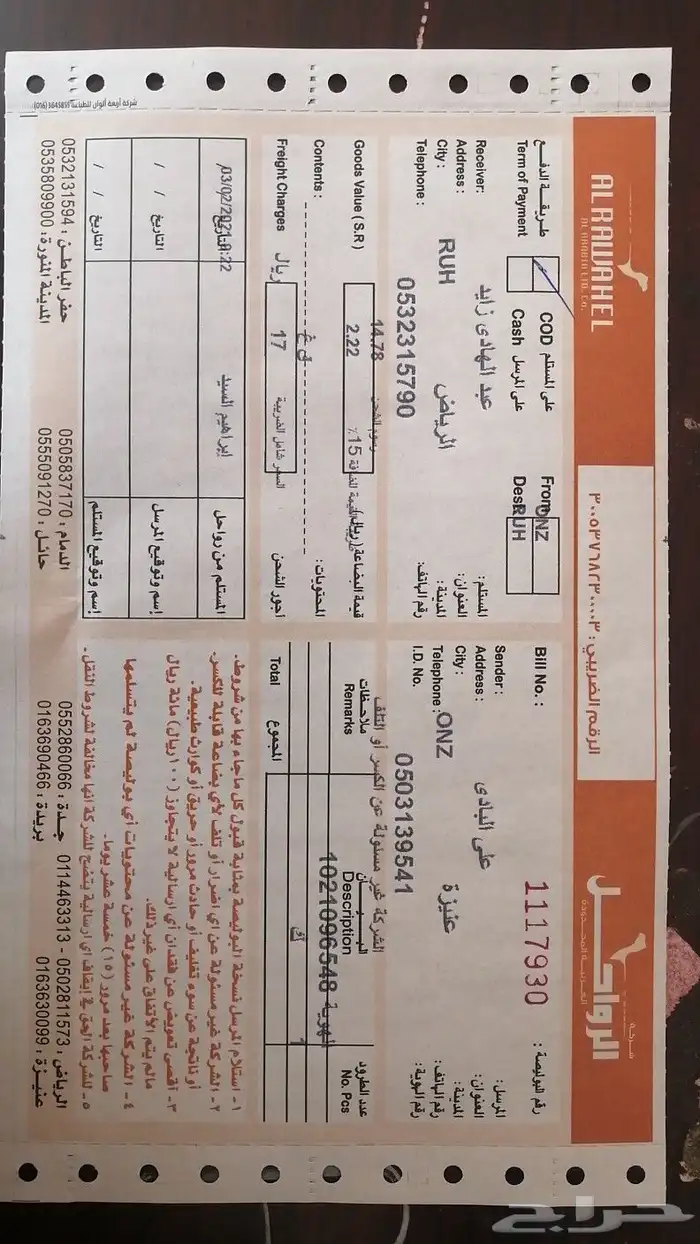 AL RAWAHEL
AL ARABIA LTD. CO.
الرقم الضريبي : ٣٠٠٥٣٧٦٨٢٣٠٠٠٠٣
شركة
الرواحل
العربية المحدودة
طريقة الدفع
Term of Payment
COD على المستلم
Cash على المرسل
From ONZ
Des RUH
Bill No. : 1117930 رقم البوليصة :
Receiver: عبد الهادى زايد المستلم:
Address : العنوان:
City : RUH الرياض المدينة:
Telephone : 0532315790 رقم الهاتف:
Sender : على البادى المرسل:
Address : العنوان:
City : ONZ عنيزة المدينة:
Telephone : 0503139541 رقم الهاتف:
I.D. No. رقم الهوية:
14.78 رسوم الشحن
Goods Value ( S.R) 2.22 15٪ قيمة البضاعة (ريال)
Contents : ق غ المحتويات:
Freight Charges ريال 17 السعر شامل الضريبة أجور الشحن
الشركة غير مسئولة عن الكسر أو التلف
ملاحظات
Remarks
البيان
Description
عدد الطرود
No. Pcs
1021096548 الهوية
ك 1
Total المجموع
03/02/2021 التاريخ 8:22 ابراهيم السيد المستلم من رواحل
/ / التاريخ إسم وتوقيع المرسل
/ / التاريخ إسم وتوقيع المستلم
١- استلام المرسل نسخة البوليصة بمثابة قبول كل ماجاء بها من شروط.
٢- الشركة غير مسئولة عن اي اضرار أو تلف لأي بضاعة قابلة للكسر
أو ناتجة عن سوء تغليف أو حادث مرور أو حريق أو كوارث طبيعية.
٣- أقصى تعويض عن فقدان أي ارسالية لا يتجاوز (١٠٠ ريال) مائة ريال
مالم يتم الاتفاق على غير ذلك.
٤- الشركة غير مسئولة عن محتويات أي بوليصة لم يتسلمها
صاحبها بعد مرور (١٥) خمسة عشر يوما.
٥- للشركة الحق في إيقاف اي ارسالية يتضح للشركة انها مخالفة لشروط النقل.
الرياض : 0502811573 - 0114463313 جدة : 0552860066 الدمام : 0505837170 حفر الباطن : 0532131594
عنيزة : 0163630099 بريدة : 0163690466 حائل : 0555091270 المدينة المنورة : 0535809900
شركة أربعة ألوان للطباعة (016) 3645855
حراج